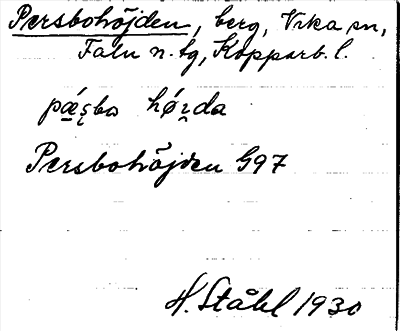 Persbohöjden, berg, Vika sn,
Falu n. tg, Kopparb. l.
Persbohöjden G97
H. Ståhl 1930